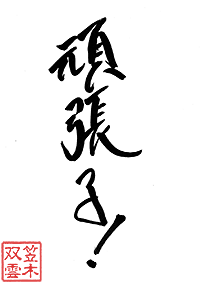 頑張る!
笠木
双雲